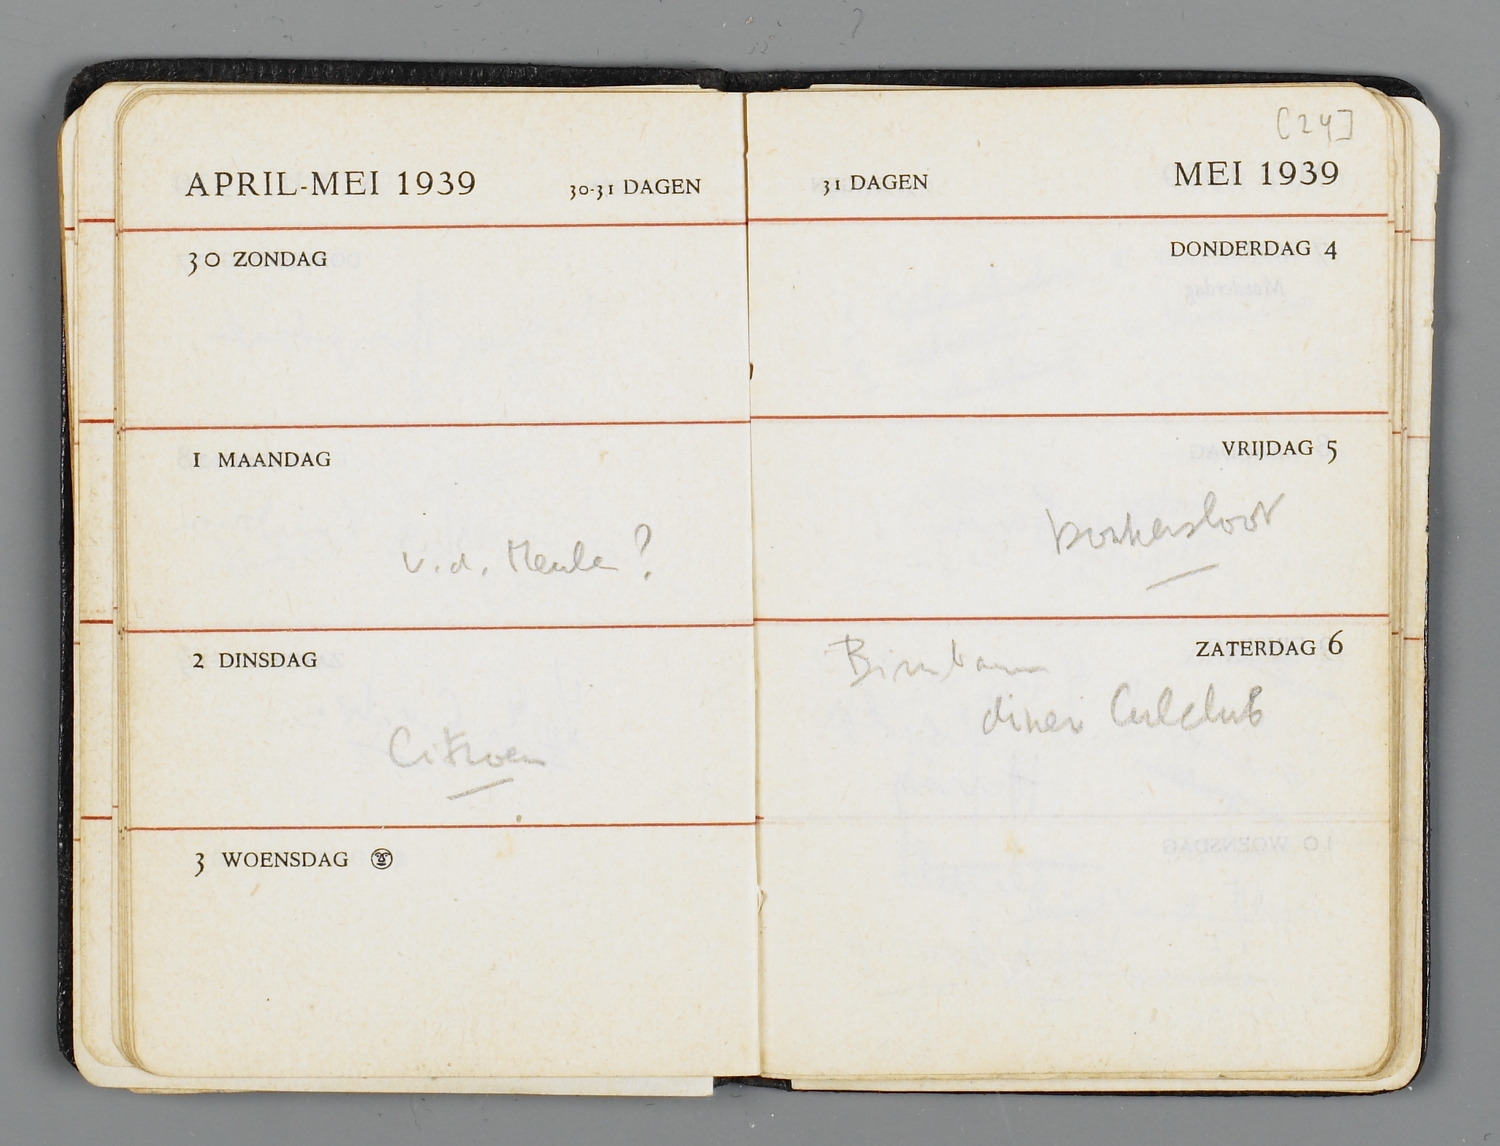 APRIL-MEI 1939 30-31 DAGEN
30 ZONDAG
1 MAANDAG
v.d. Meulen?
2 DINSDAG
Citroen
3 WOENSDAG
[24]
31 DAGEN MEI 1939
DONDERDAG 4
VRIJDAG 5
ZATERDAG 6
Birnbaum
diner Culclub